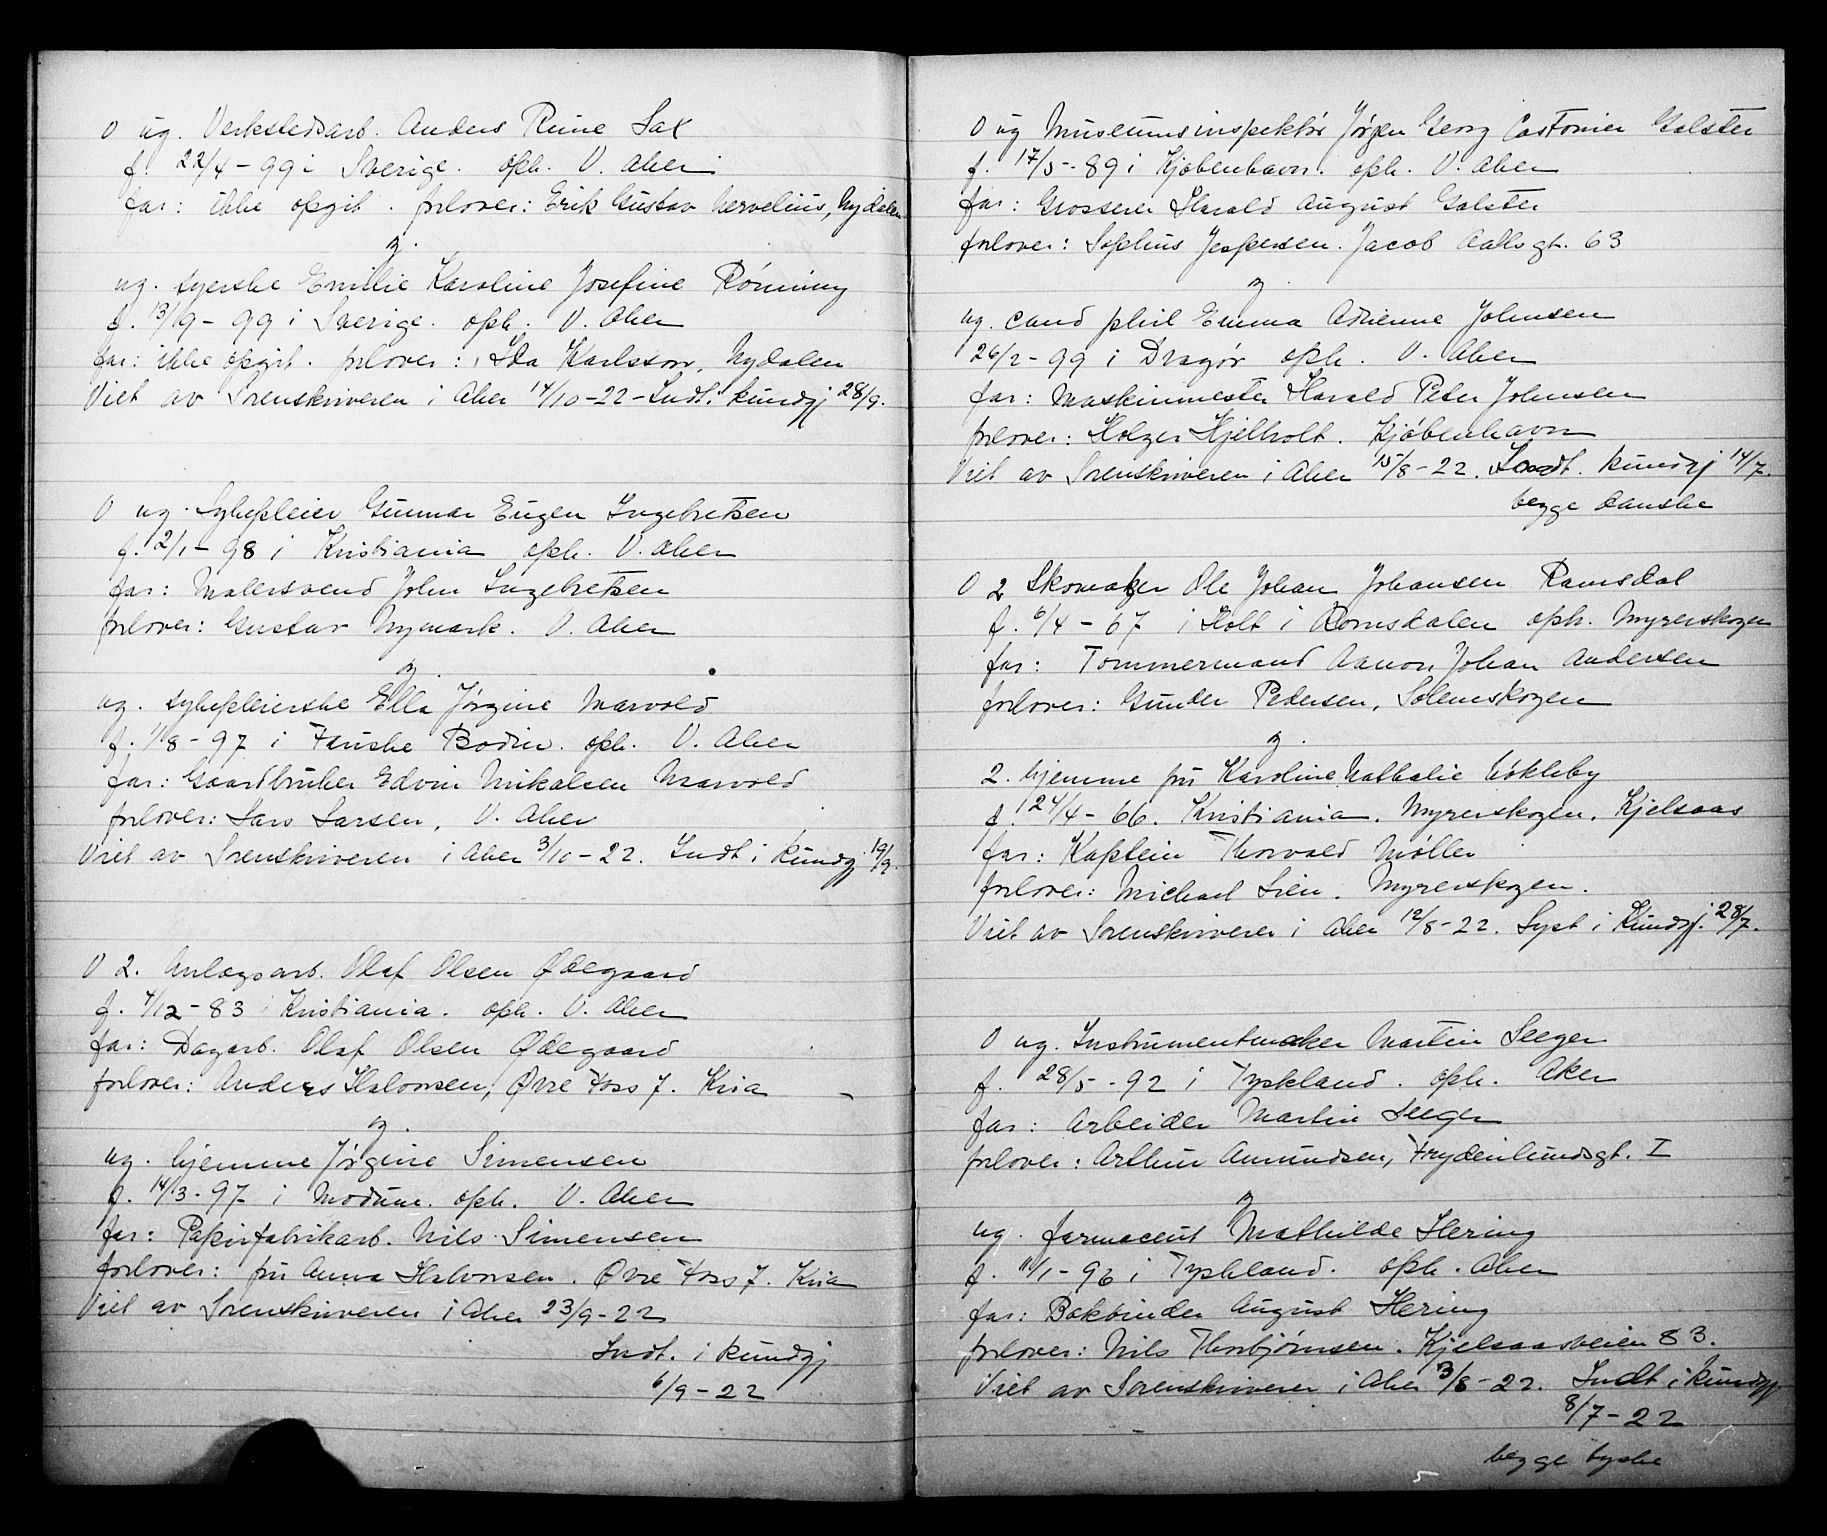 O ug. Verkstedsarb. Anders Rune Sax
f. 22/4 - 99 i Sverige. oph. V. Aker
far: ikke opgit. forlover: Erik Gustav Nervelius, Nydalen
g.
ug. syerske Emilie Karoline Josefine Rønning
f. 13/9 - 99 i Sverige. oph. V. Aker
far: ikke opgit. forlover: Ida Karlsson, Nydalen
Viet av Sorenskriveren i Aker 14/10-22 - Indt. kundgj 28/9.
O ug. Sykepleier Gunnar Eugen Ingebretsen
f. 2/1 - 98 i Kristiania oph. V. Aker
far: Malersvend John Ingebretsen
forlover: Gustav Nymark. V. Aker
g.
ug. sykepleierske Ella Jørgine Marvold
f. 11/8 - 97 i Fauske Bodin. oph. V. Aker
far: Gaardbruker Edvin Mikalsen Marvold
forlover: Lars Larsen, V. Aker
Viet av Sorenskriveren i Aker 3/10-22. Indt i kundgj 19/9.
O 2. Anlægsarb. Olaf Olsen Ødegaard
f. 4/12 - 83 i Kristiania. oph. V. Aker
far: Dagarb. Olaf Olsen Ødegaard
forlover: Anders Halvorsen, Øvre Foss 7. Kria
g.
ug. hjemme Jørgine Simensen
f. 14/3 - 97 i Modum. oph. V. Aker
far: Papirfabrikarb. Nils Simensen
forlover: fru Anna Halvorsen. Øvre Foss 7. Kria
Viet av Sorenskriveren i Aker 23/9-22
Indt. i kundgj
6/9 - 22
O ug Museumsinspektør Jørgen Georg Castonier Galster
f. 17/5 - 89 i Kjøbenhavn. oph. V. Aker
far: Grosserer Harald August Galster
forlover: Sophus Jespersen. Jacob Aallsgt. 63
g.
ug. cand phil Emma Adrienne Johnsen
26/2 - 99 i Dragør oph. V. Aker
far: Maskinmester Harald Peter Johnsen
forlover: Holger Hjelholt. Kjøbenhavn
Viet av Sorenskriveren i Aker 15/8-22. Indt. kundgj 14/7.
begge danske
O 2 Skomaker Ole Johan Johansen Ramsdal
f. 6/4 - 67 i Holt i Romsdalen oph. Myrerskogen
far: Tømmermand Aanon Johan Andersen
forlover: Gunder Pedersen, Solemskogen
g.
2. hjemme fru Karoline Nathalie Økleby
f. 24/4 - 66. Kristiania. Myrerskogen. Kjelsaas
far: Kaptein Thorvald Møller
forlover: Michael Lien. Myrerskogen.
Viet av Sorenskriveren i Aker 12/8-22. Lyst i Kundgj. 28/7.
O ug. Instrumentmaker Martin Seeger
f. 28/5 - 92 i Tyskland. oph. Aker
far: Arbeider Martin Seeger
forlover: Arthur Amundsen, Frydenlundsgt. I
g
ug. farmaceut Mathilde Hering
f. 11/1 - 96 i Tyskland. oph. Aker
far: Bokbinder August Hering
forlover: Nils Thorbjørnsen. Kjelsaasveien 83.
Viet av Sorenskriveren i Aker 3/8-22. Indt i kundgj
8/7 - 22
begge tyske
5